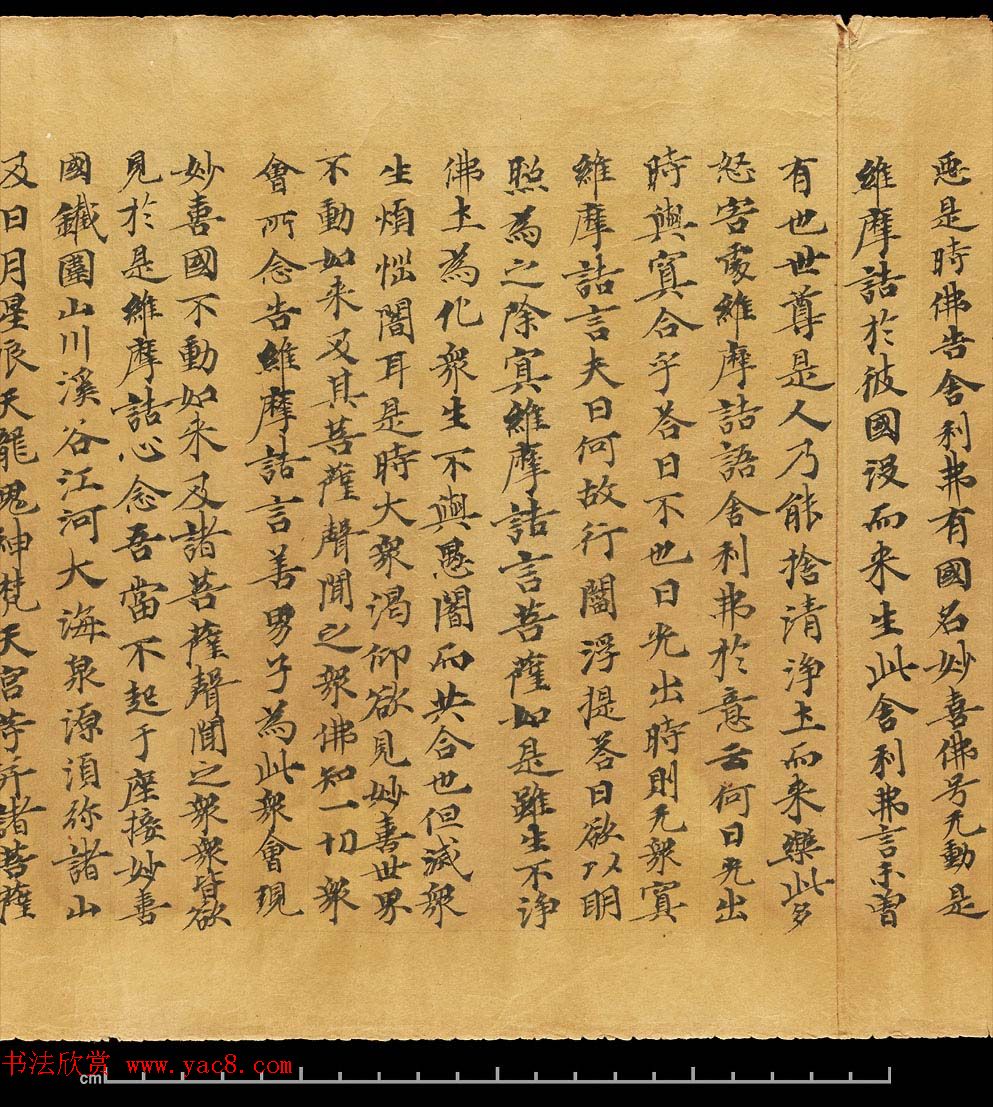 惡是時佛告舍利弗有國名妙喜佛号无動是
維摩詰於彼國没而来生此舍利弗言未曽
有也世尊是人乃能捨清浄土而来樂此多
怒害處維摩詰語舍利弗於意云何日光出
時與冥合乎荅曰不也日光出時則无衆冥
維摩詰言夫日何故行閻浮提荅曰欲以明
照為之除冥維摩詰言菩薩如是雖生不浄
佛土為化衆生不與愚闇而共合也但滅衆
生煩惱闇耳是時大衆渴仰欲見妙喜世界
不動如来及其菩薩聲聞之衆佛知一切衆
會所念告維摩詰言善男子為此衆會現
妙喜國不動如来及諸菩薩聲聞之衆衆皆欲
見於是維摩詰心念吾當不起于座接妙喜
國鐵圍山川溪谷江河大海泉源湏弥諸山
及日月星辰天龍鬼神梵天宫等并諸菩薩
书法欣赏 www.yac8.com
cm